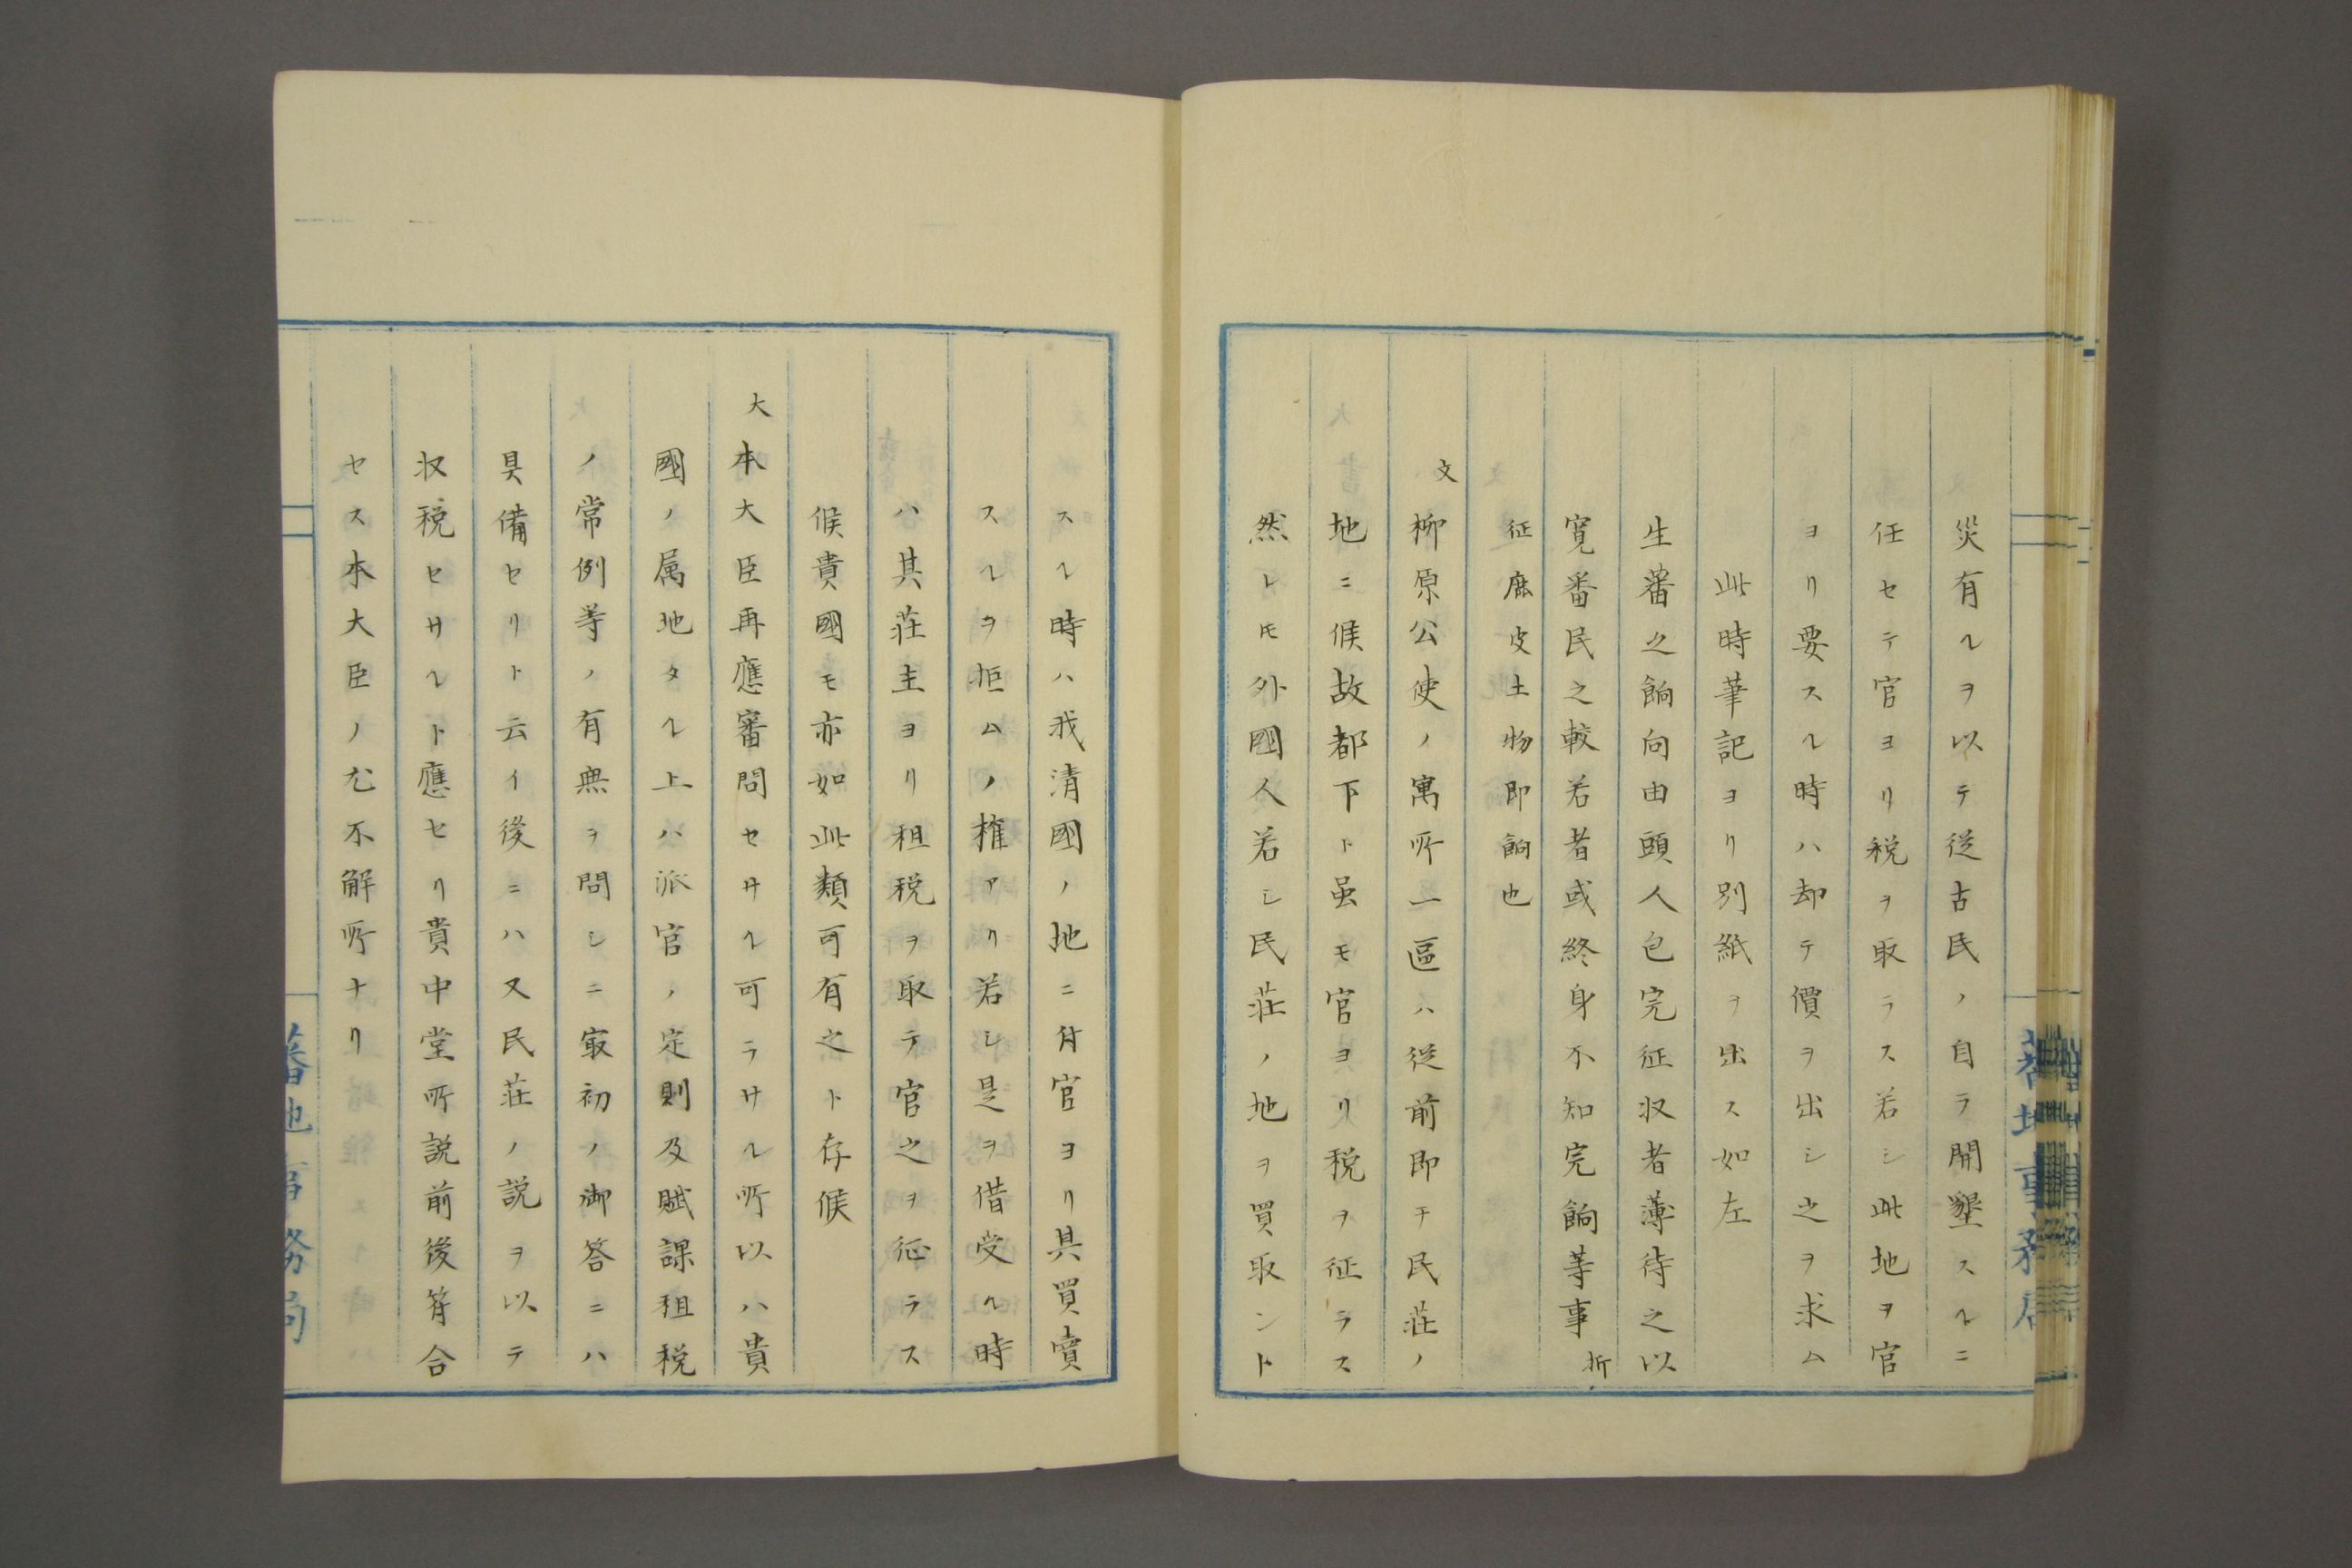 災有ルヲ以テ従古民ノ自ラ開墾スルニ
任セテ官ヨリ税ヲ取ラス若シ此地ヲ官
ヨリ要スル時ハ却テ價ヲ出シ之ヲ求ム
此時筆記ヨリ別紙ヲ出ス如左
生蕃之餉向由頭人包完征収者薄待之以
寛番民之較若者或終身不知完餉等事折
征鹿皮土物即餉也
文柳原公使ノ寓所一區ハ従前即チ民荘ノ
地ニ候故都下ト虽モ官ヨリ税ヲ征ラス
然レ𪜈外國人若シ民荘ノ地ヲ買取ント
スル時ハ我清國ノ地ニ付官ヨリ具買賣
スルヲ拒ムノ権アリ若シ是ヲ借受ル時
ハ其荘主ヨリ租税ヲ取テ官之ヲ征ラス
候貴國モ亦如此類可有之ト存候
大本大臣再應審問セサル可ラサル所以ハ貴
國ノ属地タル上ハ派官ノ定則及賦課租税
ノ常例等ノ有無ヲ問シニ冣初ノ御答ニハ
具備セリト云イ後ニハ又民荘ノ説ヲ以テ
収税セサルト應セリ貴中堂所説前後符合
セス本大臣ノ尤不解所ナリ
蕃地事務局
蕃地事務局